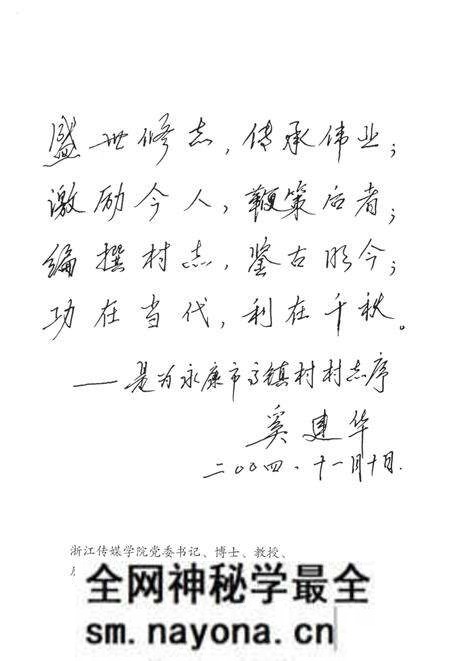 盛世修志，传承伟业；
激励今人，鞭策后者；
编撰村志，鉴古明今；
功在当代，利在千秋。
——是为永康市高镇村村志序
奚建华
二〇〇四、十一月十日.
浙江传媒学院党委书记、博士、教授、
全网神秘学最全
sm.nayona.cn